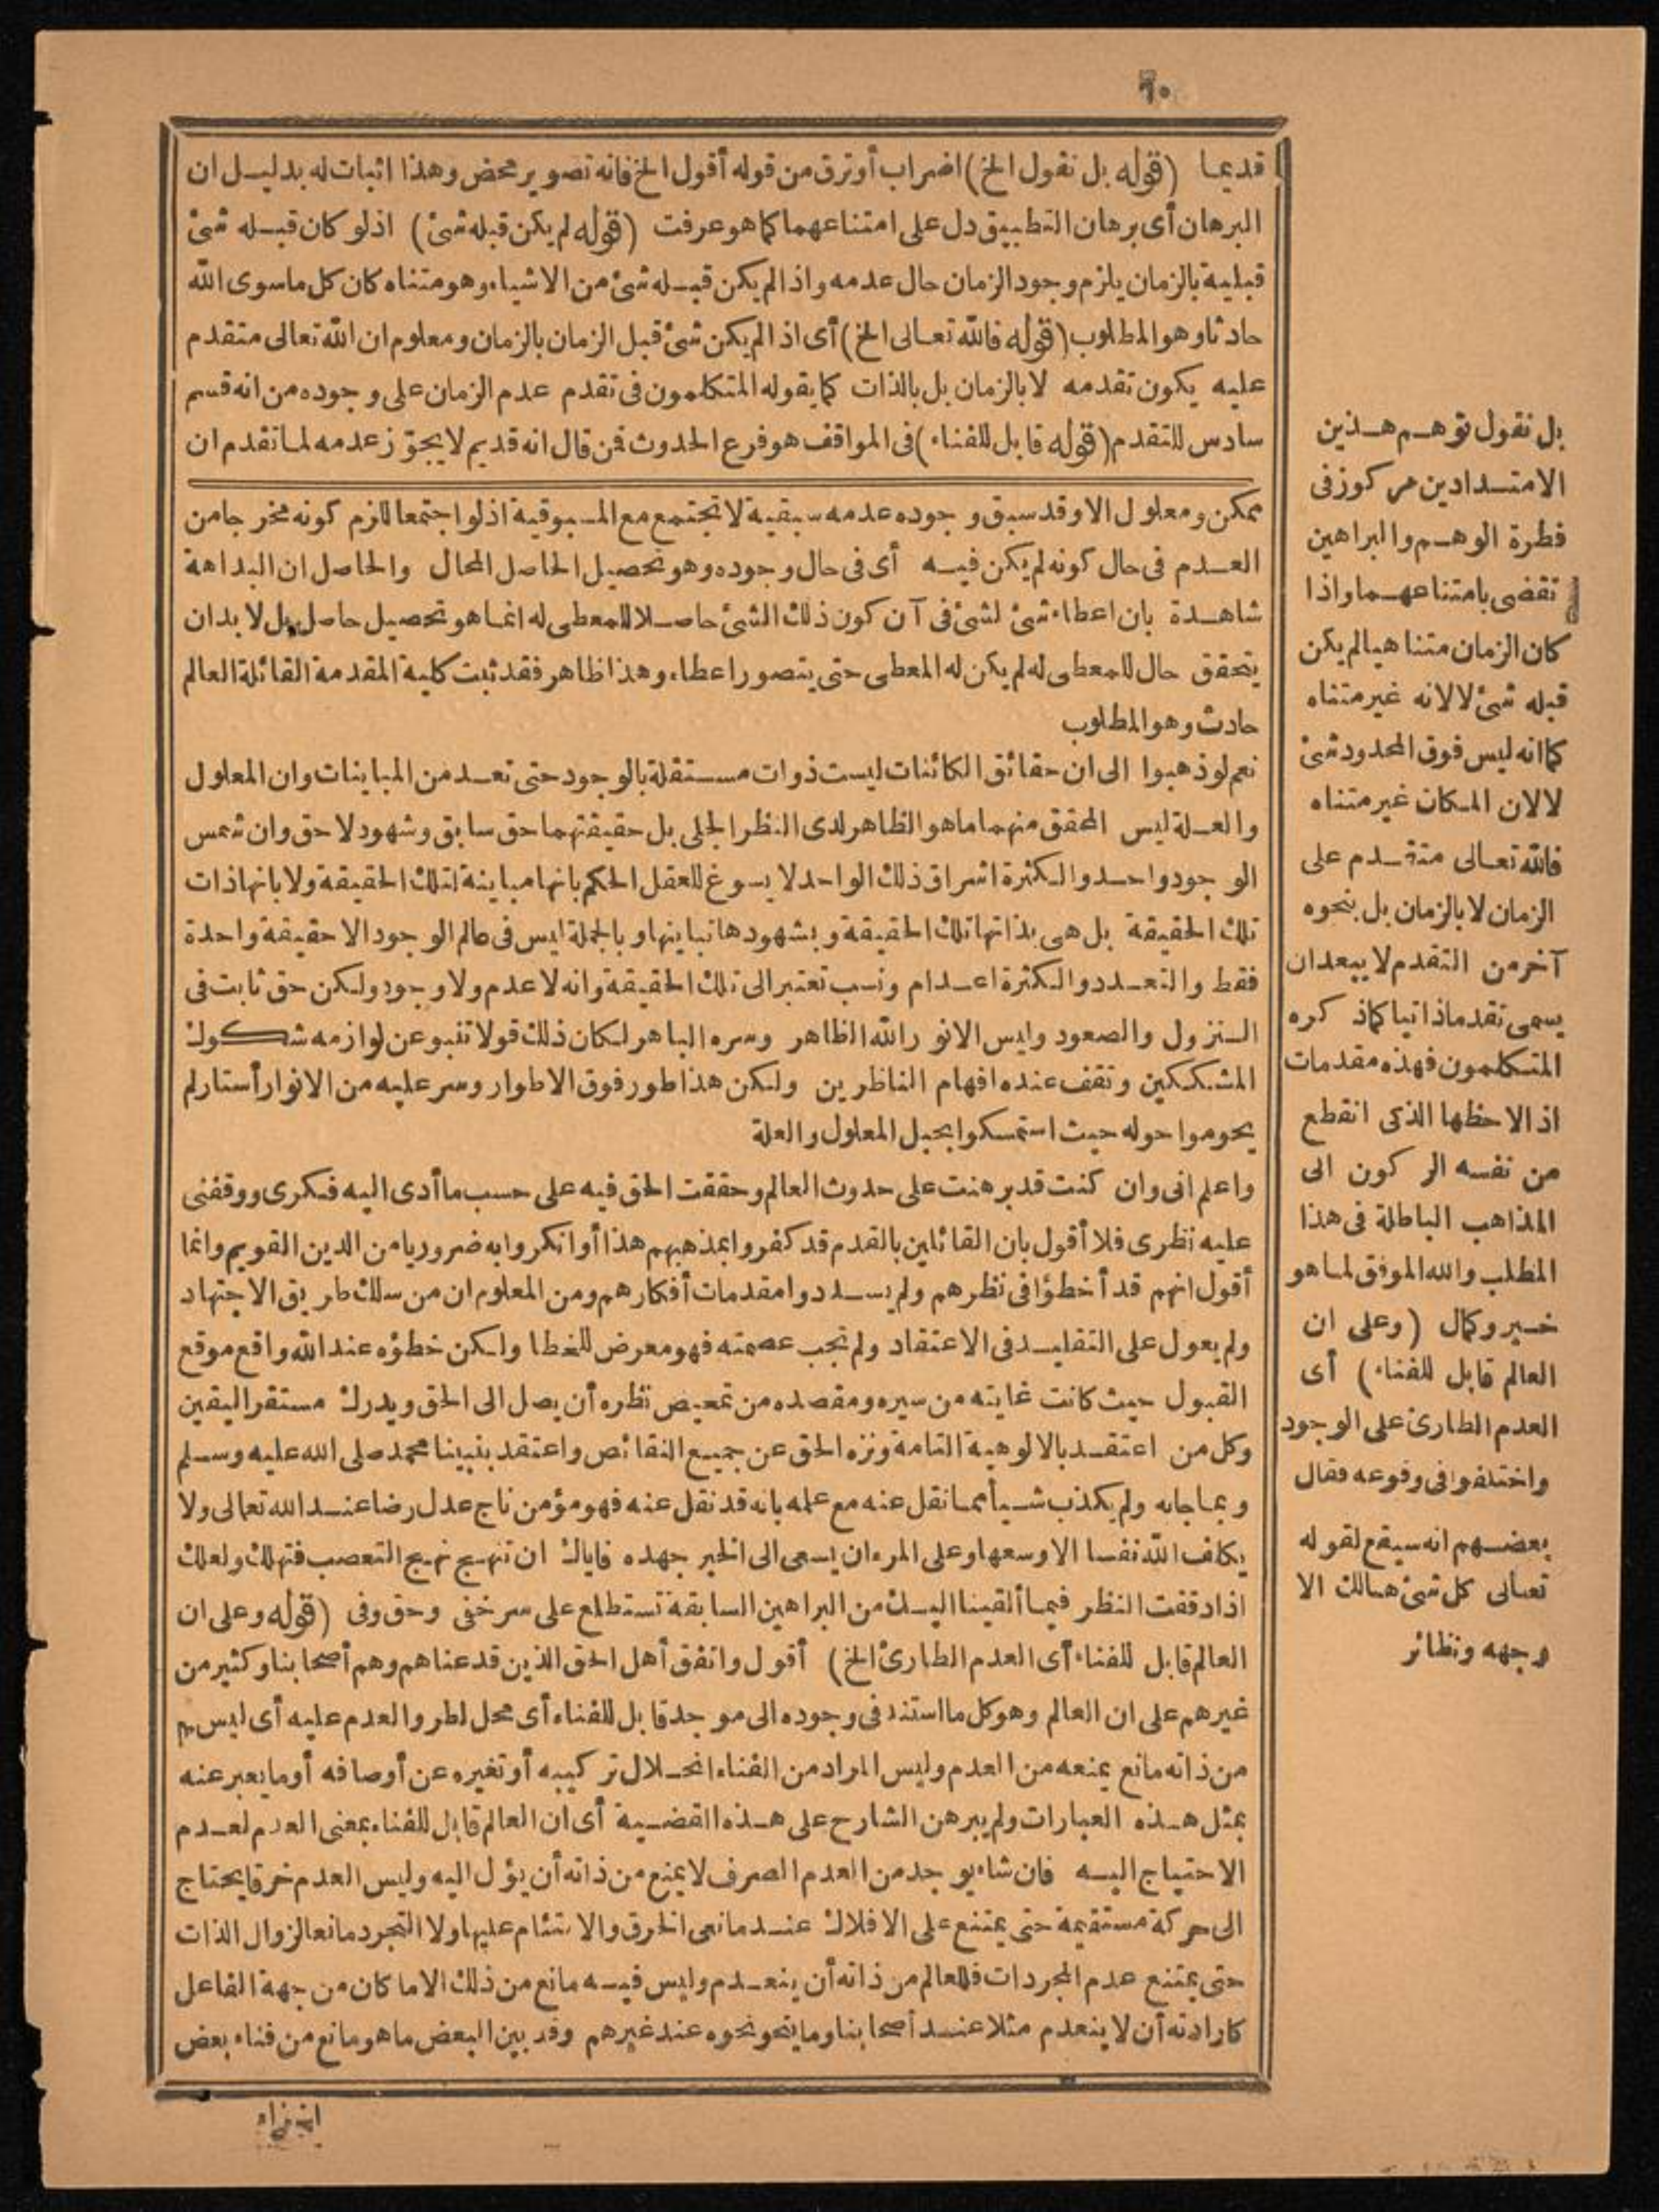 ٦٠
قديما (قوله بل نقول الخ) اضراب أوترق من قوله أقول الخ فانه تصوير محض وهذا اثبات له بدليل ان
البرهان أى برهان التطبيق دل على امتناعهما كما هو عرفت (قوله لم يكن قبله شئ) اذ لو كان قبله شئ
قبلية بالزمان يلزم وجود الزمان حال عدمه واذا لم يكن قبله شئ من الاشياء وهو متناه كان كل ماسوى الله
حادثا وهو المطلوب (قوله فالله تعالى الخ) أى اذا لم يكن شئ قبل الزمان بالزمان ومعلوم ان الله تعالى متقدم
عليه يكون تقدمه لا بالزمان بل بالذات كما يقوله المتكلمون فى تقدم عدم الزمان على وجوده من انه قسم
سادس للتقدم (قوله قابل للفناء) فى المواقف هو فرع الحدوث فمن قال انه قديم لا يجوّز عدمه لما تقدم ان
ممكن ومعلول الا وقد سبق وجوده عدمه سبقية لا تجتمع مع المسبوقية اذ لو اجتمعا للزم كونه مخرجا من
العدم فى حال كونه لم يكن فيه أى فى حال وجوده وهو تحصيل الحاصل المحال والحاصل ان البداهة
شاهدة بان اعطاء شئ لشئ فى آن كون ذلك الشئ حاصلا للمعطى له انما هو تحصيل حاصل بل لا بد ان
يتحقق حال للمعطى له لم يكن له المعطى حتى يتصور اعطاء وهذا ظاهر فقد ثبت كلية المقدمة القائلة العالم
حادث وهو المطلوب
نعم لو ذهبوا الى ان حقائق الكائنات ليست ذوات مستقلة بالوجود حتى تعد من المباينات وان المعلول
والعلة ليس المحقق منهما ما هو الظاهر لدى النظر الجلى بل حقيقتهما حق سابق وشهود لاحق وان شمس
الوجود واحد والكثرة اشراق ذلك الواحد لا يسوغ للعقل الحكم بانها مباينة لتلك الحقيقة ولا بانها ذات
تلك الحقيقة بل هى بذاتها تلك الحقيقة وبشهودها تباينها وبالجملة ليس فى عالم الوجود الا حقيقة واحدة
فقط والتعدد والكثرة اعدام ونسب تعتبر الى تلك الحقيقة وانه لا عدم ولا وجود ولكن حق ثابت فى
النزول والصعود وليس الا نور الله الظاهر وسره الباهر لكان ذلك قولا تنبو عن لوازمه شكوك
المشككين وتقف عنده افهام الناظرين ولكن هذا طور فوق الاطوار وسر عليه من الانوار أستار لم
يحوموا حوله حيث استمسكوا بحبل المعلول والعلة
واعلم انى وان كنت قد برهنت على حدوث العالم وحققت الحق فيه على حسب ما أدى اليه فكرى ووقفنى
عليه نظرى فلا أقول بان القائلين بالقدم قد كفروا بمذهبهم هذا أو انكروا به ضروريا من الدين القويم وانما
أقول انهم قد أخطؤا فى نظرهم ولم يسددوا مقدمات أفكارهم ومن المعلوم ان من سلك طريق الاجتهاد
ولم يعول على التقليد فى الاعتقاد ولم تجب عصمته فهو معرض للخطا ولكن خطؤه عند الله واقع موقع
القبول حيث كانت غايته من سيره ومقصده من تمحيص نظره أن يصل الى الحق ويدرك مستقر اليقين
وكل من اعتقد بالالوهية التامة ونزه الحق عن جميع النقائص واعتقد بنبينا محمد صلى الله عليه وسلم
وبما جابه ولم يكذب شيأ مما نقل عنه مع علمه بانه قد نقل عنه فهو مؤمن ناج عدل رضا عند الله تعالى ولا
يكلف الله نفسا الا وسعها وعلى المرء ان يسعى الى الخير جهده فاياك ان تنهج نهج التعصب فتهلك ولعلك
اذا دققت النظر فيما ألقينا اليك من البراهين السابقة تستطلع على سر خفى وحق وفى (قوله وعلى ان
العالم قابل للفناء أى العدم الطارئ الخ) أقول واتفق أهل الحق الذين قد عناهم وهم أصحابنا وكثير من
غيرهم على ان العالم وهو كل ما استند فى وجوده الى موجد قابل للفناء أى محل لطرو العدم عليه أى ليس
من ذاته مانع يمنعه من العدم وليس المراد من الفناء انحلال تركيبه أو تغيره عن أوصافه أو ما يعبر عنه
بمثل هذه العبارات ولم يبرهن الشارح على هذه القضية أى ان العالم قابل للفناء بمعنى العدم لعدم
الاحتياج اليه فان شاء يوجد من العدم الصرف لا يمنع من ذاته أن يؤل اليه وليس العدم خرقا يحتاج
الى حركة مستقيمة حتى يمتنع على الافلاك عند مانعى الخرق والالتئام عليها ولا التجرد مانعا لزوال الذات
حتى يمتنع عدم المجردات فللعالم من ذاته أن ينعدم وليس فيه مانع من ذلك الا ما كان من جهة الفاعل
كارادته أن لا ينعدم مثلا عند أصحابنا وما ينحو نحوه عند غيرهم وقد بين البعض ما هو مانع من فناء بعض
بل نقول توهم هذين
الامتدادين مركوز فى
فطرة الوهم والبراهين
تقضى بامتناعهما واذا
كان الزمان متناهيا لم يكن
قبله شئ لا لانه غير متناه
كما انه ليس فوق المحدود شئ
لا لان المكان غير متناه
فالله تعالى متقدم على
الزمان لا بالزمان بل بنحوه
آخر من التقدم لا يبعد ان
يسمى تقدما ذاتيا كما ذكره
المتكلمون فهذه مقدمات
اذا لاحظها الذكى انقطع
من نفسه الركون الى
المذاهب الباطلة فى هذا
المطلب والله الموفق لما هو
خير وكمال (وعلى ان
العالم قابل للفناء) أى
العدم الطارئ على الوجود
واختلفوا فى وقوعه فقال
بعضهم انه سيقع لقوله
تعالى كل شئ هالك الا
وجهه ونظائر